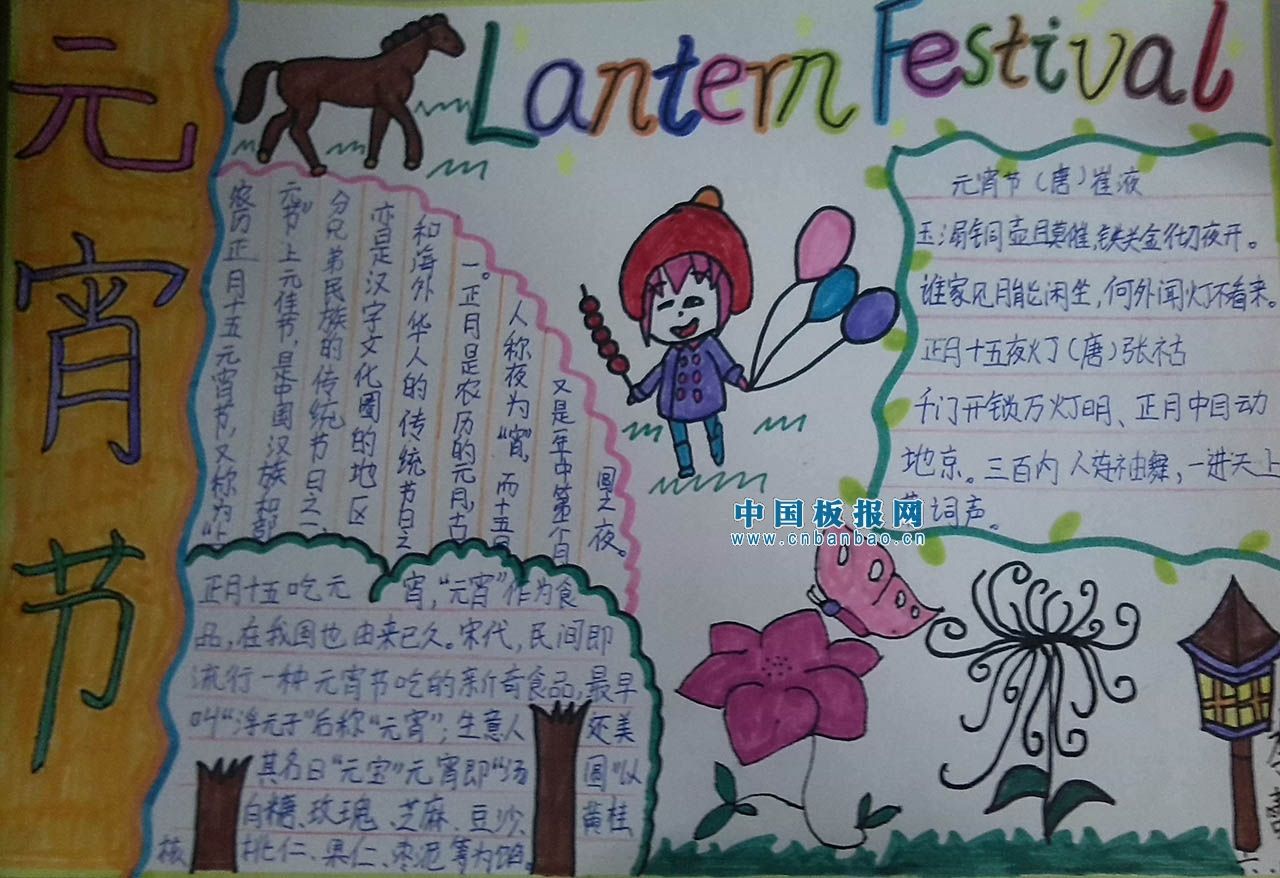 元宵节
Lantern Festival
农历正月十五元宵节,又称为“上
元节”上元佳节,是中国汉族和部
分兄弟民族的传统节日之一,
亦是汉字文化圈的地区
和海外华人的传统节日之
一。正月是农历的元月,古
人称夜为“宵”,而十五日
又是年中第个月
圆之夜。
元宵节(唐)崔液
玉漏铜壶且莫催,铁关金彻夜开。
谁家见月能闲坐,何外闻灯不看来。
正月十五夜灯(唐)张祜
千门开锁万灯明、正月中目动
地京。三百内人连袖舞,一进天上
著词声。
中国板报网
www.cnbanbao.cn
正月十五吃元宵,“元宵”作为食
品,在我国也由来已久。宋代,民间即
流行一种元宵节吃的新奇食品,最早
叫“浮元子”后称“元宵”;生意人还美
其名曰“元宝”元宵即“汤圆”以
白糖、玫瑰、芝麻、豆沙、黄桂
核桃仁、果仁、枣泥等为馅。